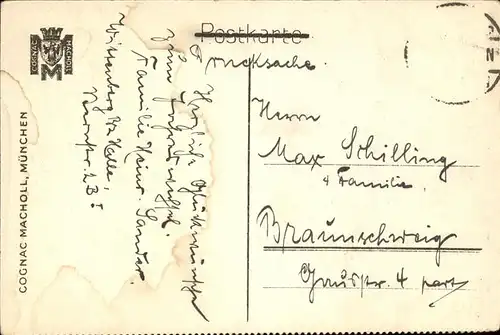 COGNAC MACHOLL
M
COGNAC MACHOLL, MÜNCHEN
Postkarte
Drucksache.
Herzliche Glückwünsche
zum Jahreswechsel.
Familie Heinr. Sander.
Wittenberg Bz Halle,
Herrn
Max Schilling
u Familie.
Braunschweig
Gausstr. 4 part